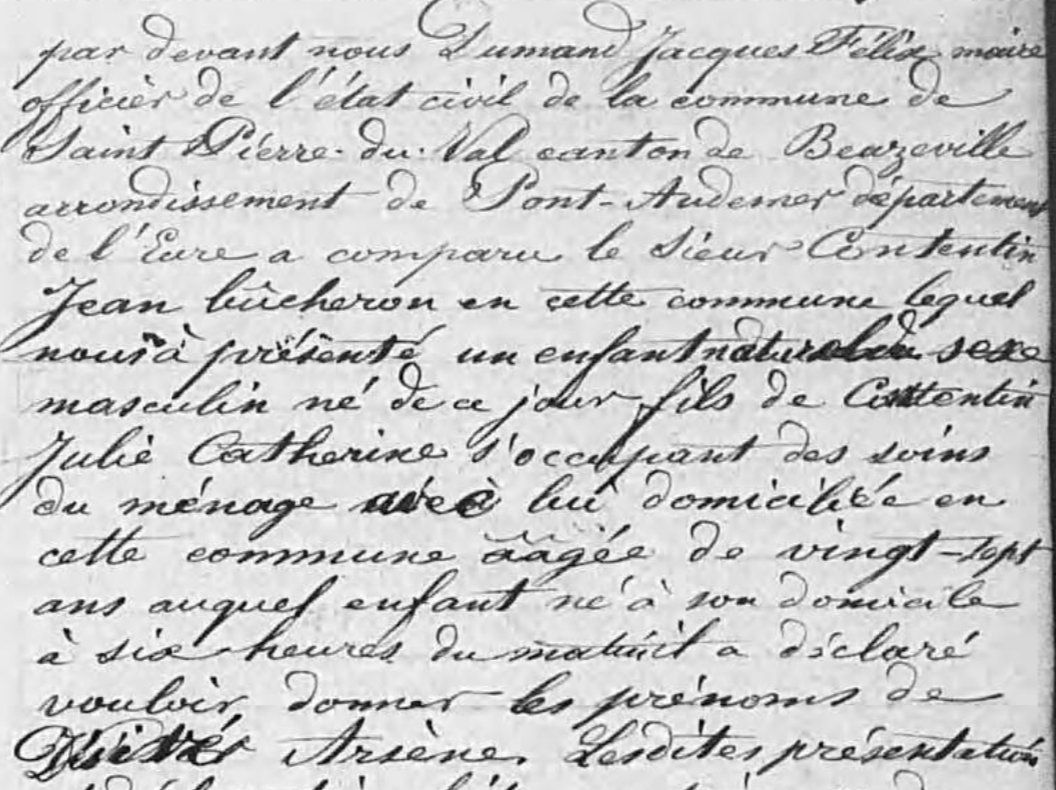 par devant nous Dumand Jacques Félix maire
officier de l'état civil de la commune de
Saint Pierre-du-Val canton de Beuzeville
arrondissement de Pont-Audemer département
de l'Eure a comparu le sieur Contentin
Jean bûcheron en cette commune lequel
nous à présenté un enfant naturel du sexe
masculin né de ce jour fils de Contentin
Julie Catherine s'occupant des soins
du ménage avec lui domiciliée en
cette commune âgée de vingt-sept
ans auquel enfant né à son domicile
à six heures du matin il a déclaré
vouloir donner les prénoms de
Désiré Arsène. Lesdites présentation